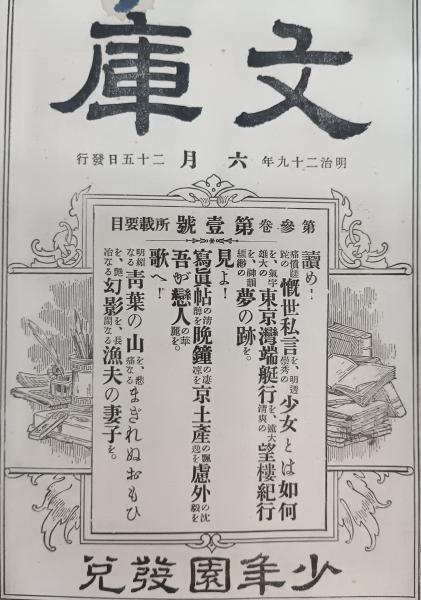 文庫
明治二十九年六月二十五日發行
第參卷第壹號所載要目
讀め!
痛憤蹉跎の慨世私言を、明透崇秀の少女とは如何
を、氣宇雄大の東京灣端艇行を、遠大清爽の望樓紀行
を、神韻縹緲の夢の跡を。
見よ!
寫眞帖の清醇を晩鐘の凄凉を京土產の飄逸を慮外の沈毅を
吾が戀人の華麗を。
歌へ!
明媚なる青葉の山を、悲痛なるまぎれぬおもひ
を、艷冶なる幻影を、長閑なる漁夫の妻子を。
少年園發兌